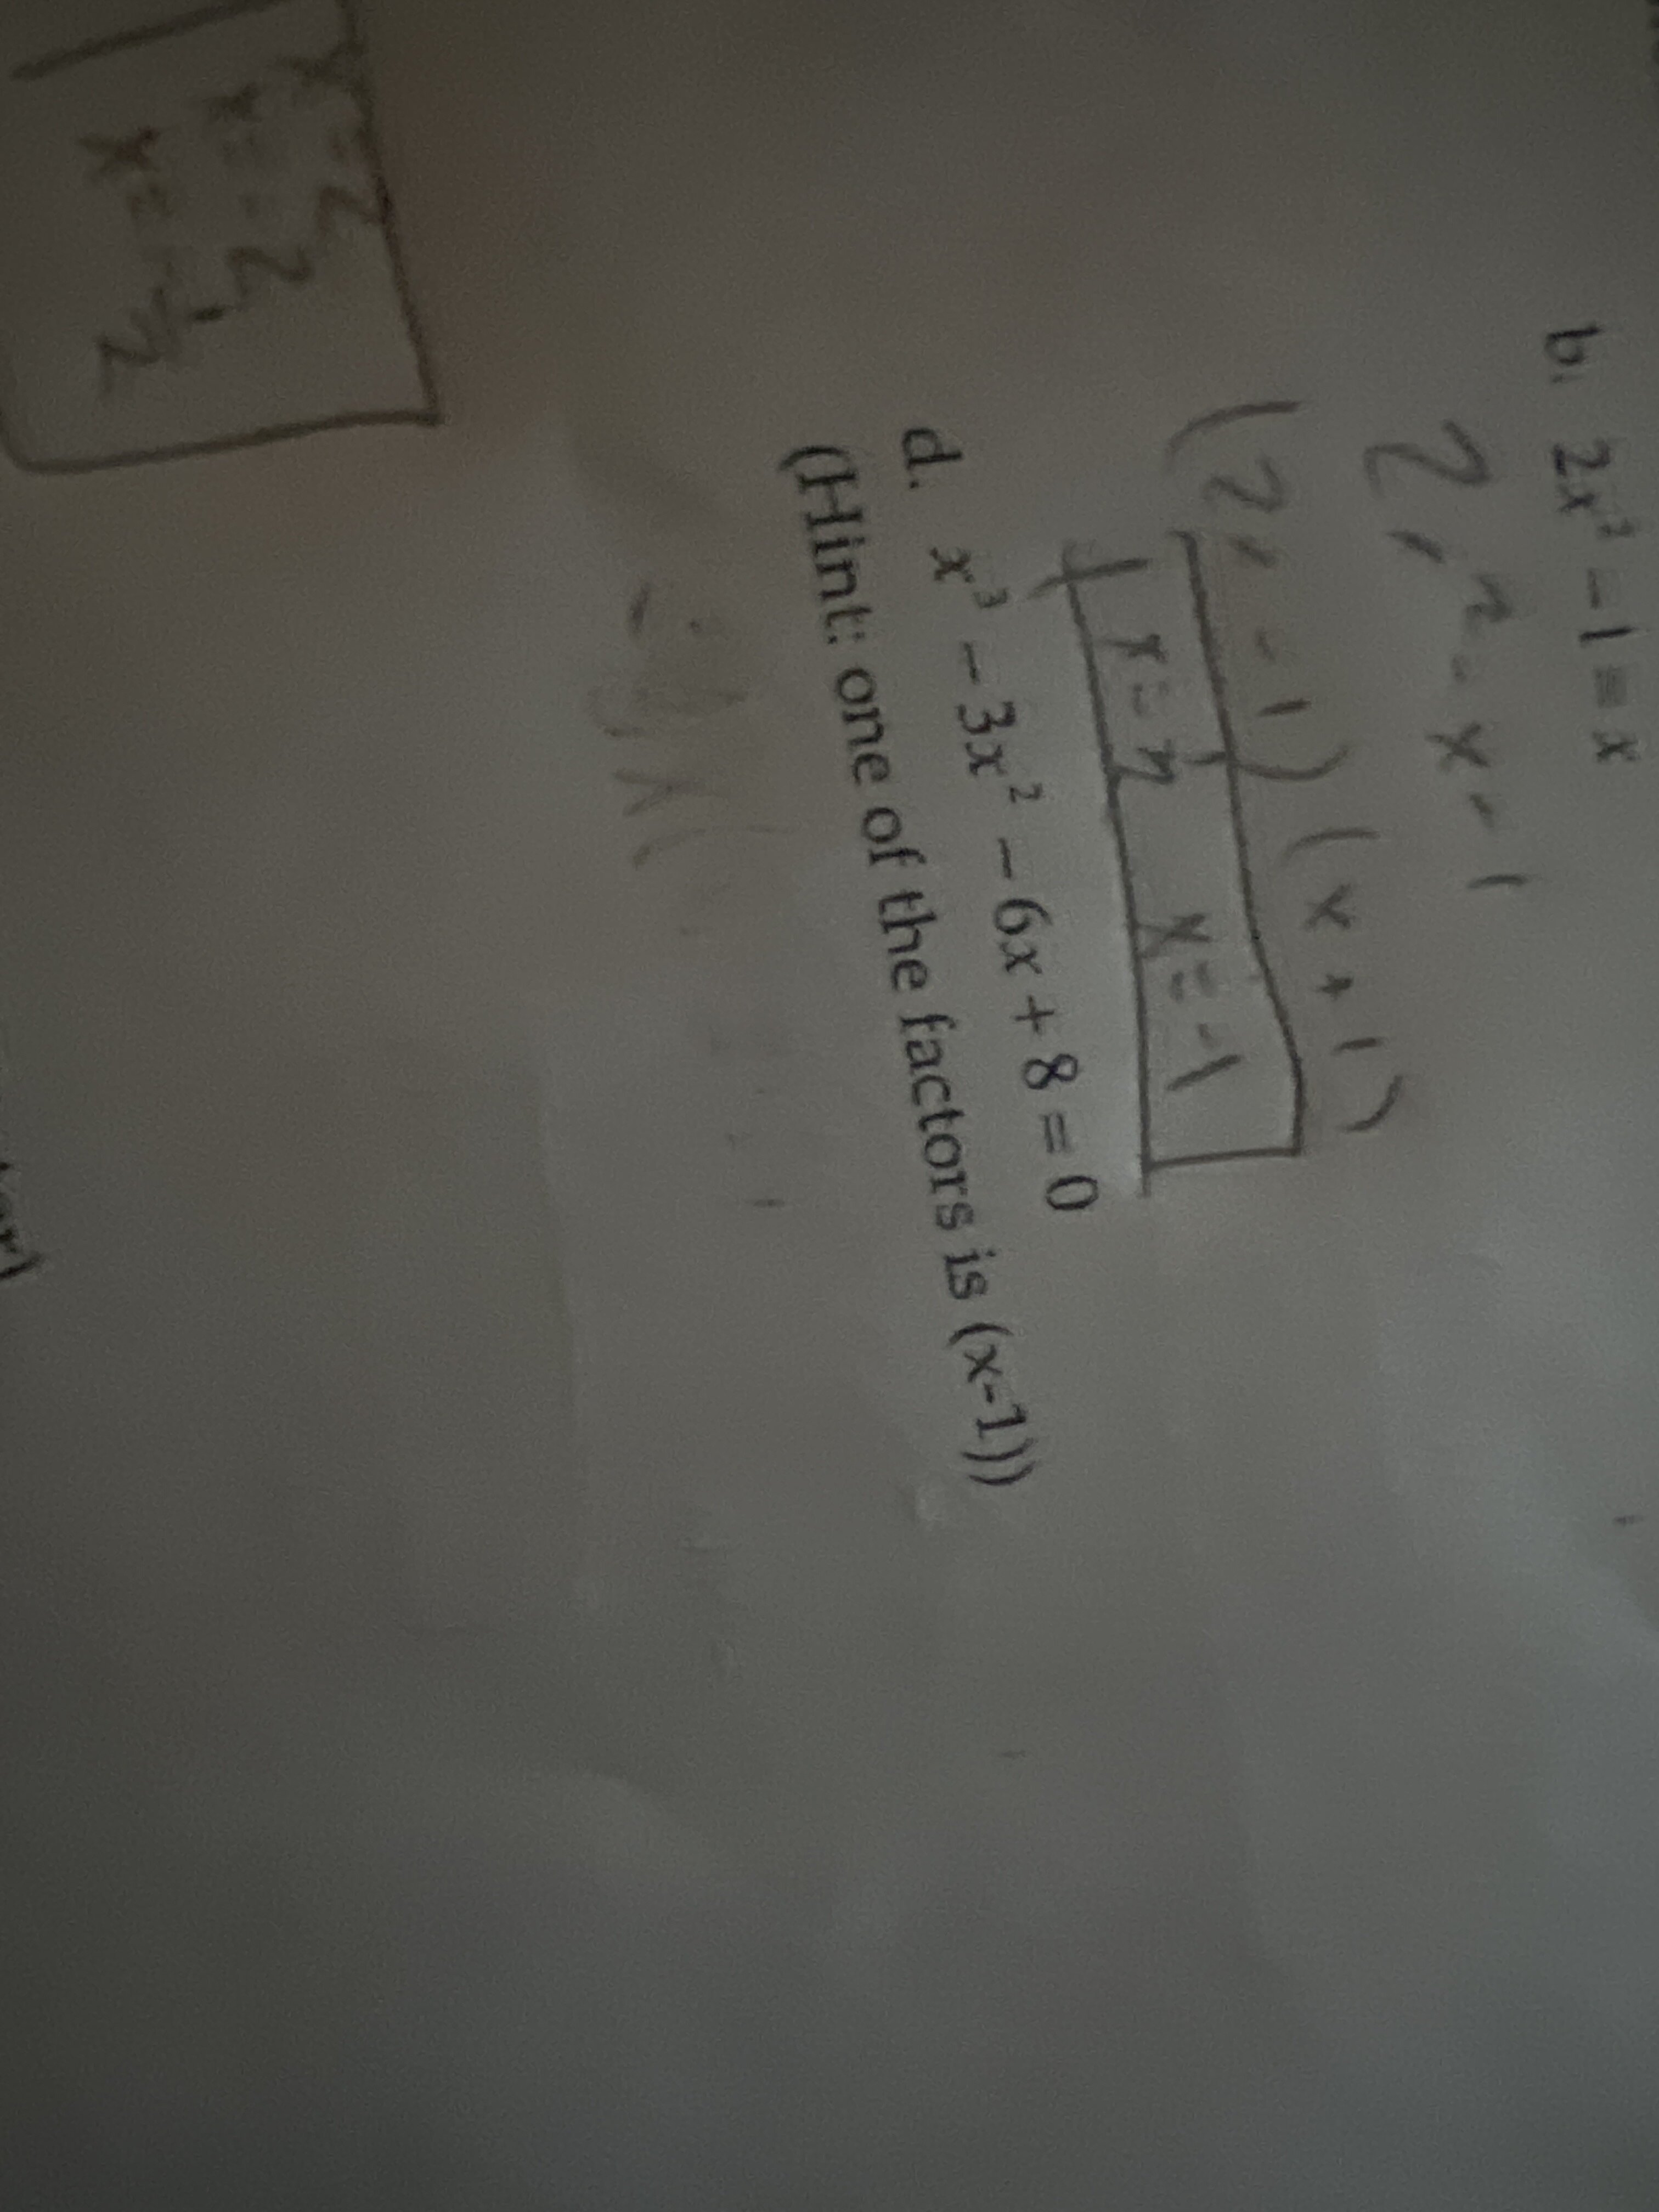 b. 2x² - 1 = x
2x² - x - 1
(2x - 1)(x + 1)
x = ½ x = -1
d. x³ - 3x² - 6x + 8 = 0
(Hint: one of the factors is (x-1))
x = 2
x = -2
x = -½